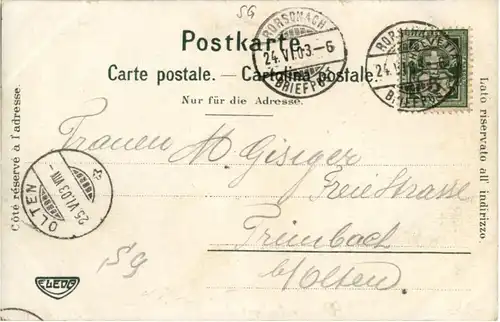 SG
Postkarte.
Carte postale. — Cartolina postale.
Nur für die Adresse.
RORSCHACH
24.VI.03.–6
BRIEFPOST
RORSCHACH
24.VI
BRIEFPOST
HELVETIA
Côté réservé à l'adresse.
Lato riservato all' indirizzo.
Frauen M. Gisiger
Freie Strasse
Trimbach
b/Olten.
OLTEN
25.VI.03 VIII –
SG
ELEDP